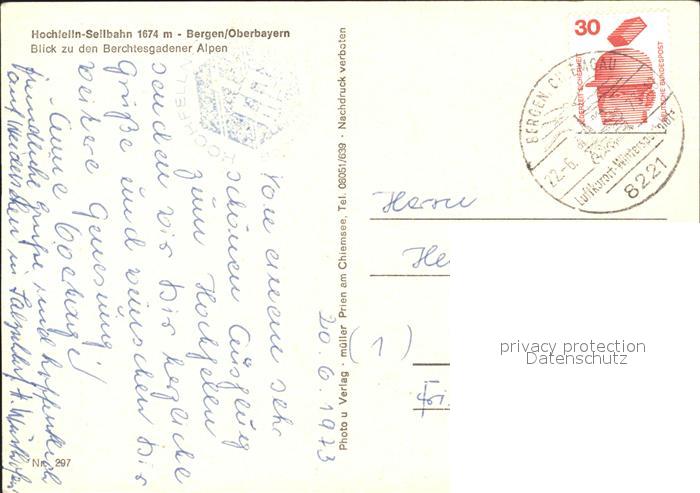 Hochfelln-Seilbahn 1674 m - Bergen/Oberbayern
Blick zu den Berchtesgadener Alpen
20. 6. 1973
Von einem sehr
schönen Ausflug
zum Hochfelln
senden wir Dir herzliche
Grüße und wünschen Dir
weitere Genesung!
freundliche Grüße und hoffentlich
auf Wiedersehen in
Nr. 297
HOCHFELLN
Photo u Verlag · müller Prien am Chiemsee, Tel. 08051/639 · Nachdruck verboten
30
JEDERZEIT SICHERHEIT
DEUTSCHE BUNDESPOST
BERGEN CHIEMGAU
22.-6.
Luftkurort-Wintersportplatz
8221
Herrn
He
(1)
privacy protection
Datenschutz